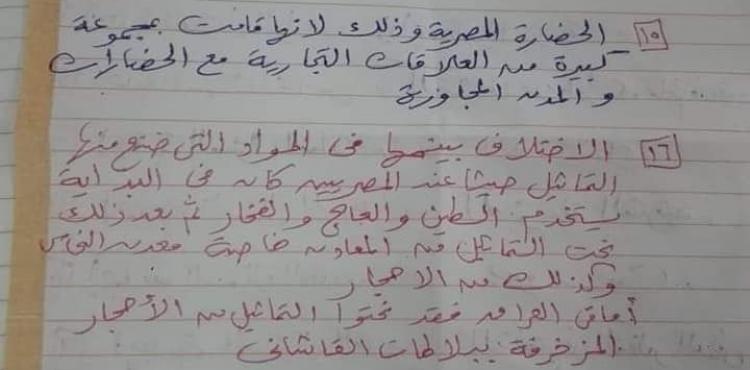 ١٥ الحضارة المصرية وذلك لانها قامت بمجموعة
كبيرة من العلاقات التجارية مع الحضارات
و المدن المجاورة
١٦ الاختلاف بينهما فى المواد التى صنع منها
التماثيل حيث عند المصريين كان فى البداية
يستخدم الطين والعاج والفخار ثم بعد ذلك
نحت التماثيل من المعادن خاصة معدن النحاس
وكذلك من الاحجار
أما فى العراق فقد نحتوا التماثيل من الأحجار
المزخرفة ببلاطات القاشانى